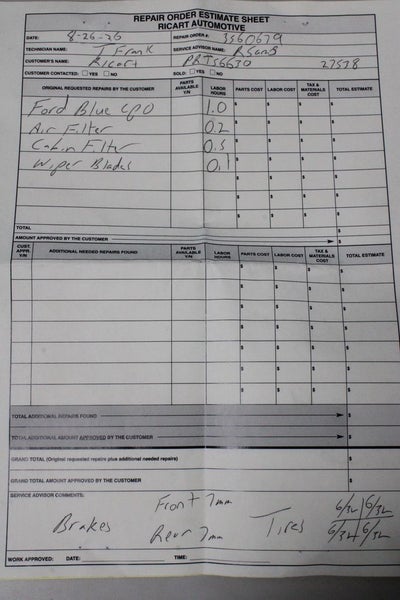 REPAIR ORDER ESTIMATE SHEET
RICART AUTOMOTIVE
DATE: 8-26-26 REPAIR ORDER #: 3560679
TECHNICIAN NAME: T Frank SERVICE ADVISOR NAME: RSands
CUSTOMER'S NAME: Ricart PRT56630 27538
CUSTOMER CONTACTED: YES NO SOLD: YES NO
ORIGINAL REQUESTED REPAIRS BY THE CUSTOMER PARTS AVAILABLE Y/N LABOR HOURS PARTS COST LABOR COST TAX & MATERIALS COST TOTAL ESTIMATE
Ford Blue CPO 1.0 $ $ $ $
Air Filter 0.2 $ $ $ $
Cabin Filter 0.5 $ $ $ $
Wiper Blades 0.1 $ $ $ $
$ $ $ $
$ $ $ $
$ $ $ $
TOTAL $
AMOUNT APPROVED BY THE CUSTOMER $
CUST. APPR. Y/N ADDITIONAL NEEDED REPAIRS FOUND PARTS AVAILABLE Y/N LABOR HOURS PARTS COST LABOR COST TAX & MATERIALS COST TOTAL ESTIMATE
$ $ $ $
$ $ $ $
$ $ $ $
$ $ $ $
$ $ $ $
$ $ $ $
$ $ $ $
TOTAL ADDITIONAL REPAIRS FOUND $
TOTAL ADDITIONAL AMOUNT APPROVED BY THE CUSTOMER $
GRAND TOTAL (Original requested repairs plus additional needed repairs) $
GRAND TOTAL AMOUNT APPROVED BY THE CUSTOMER $
SERVICE ADVISOR COMMENTS:
Front 7mm 6/32 6/32
Brakes Rear 7mm Tires 6/32 6/32
WORK APPROVED: DATE: TIME: